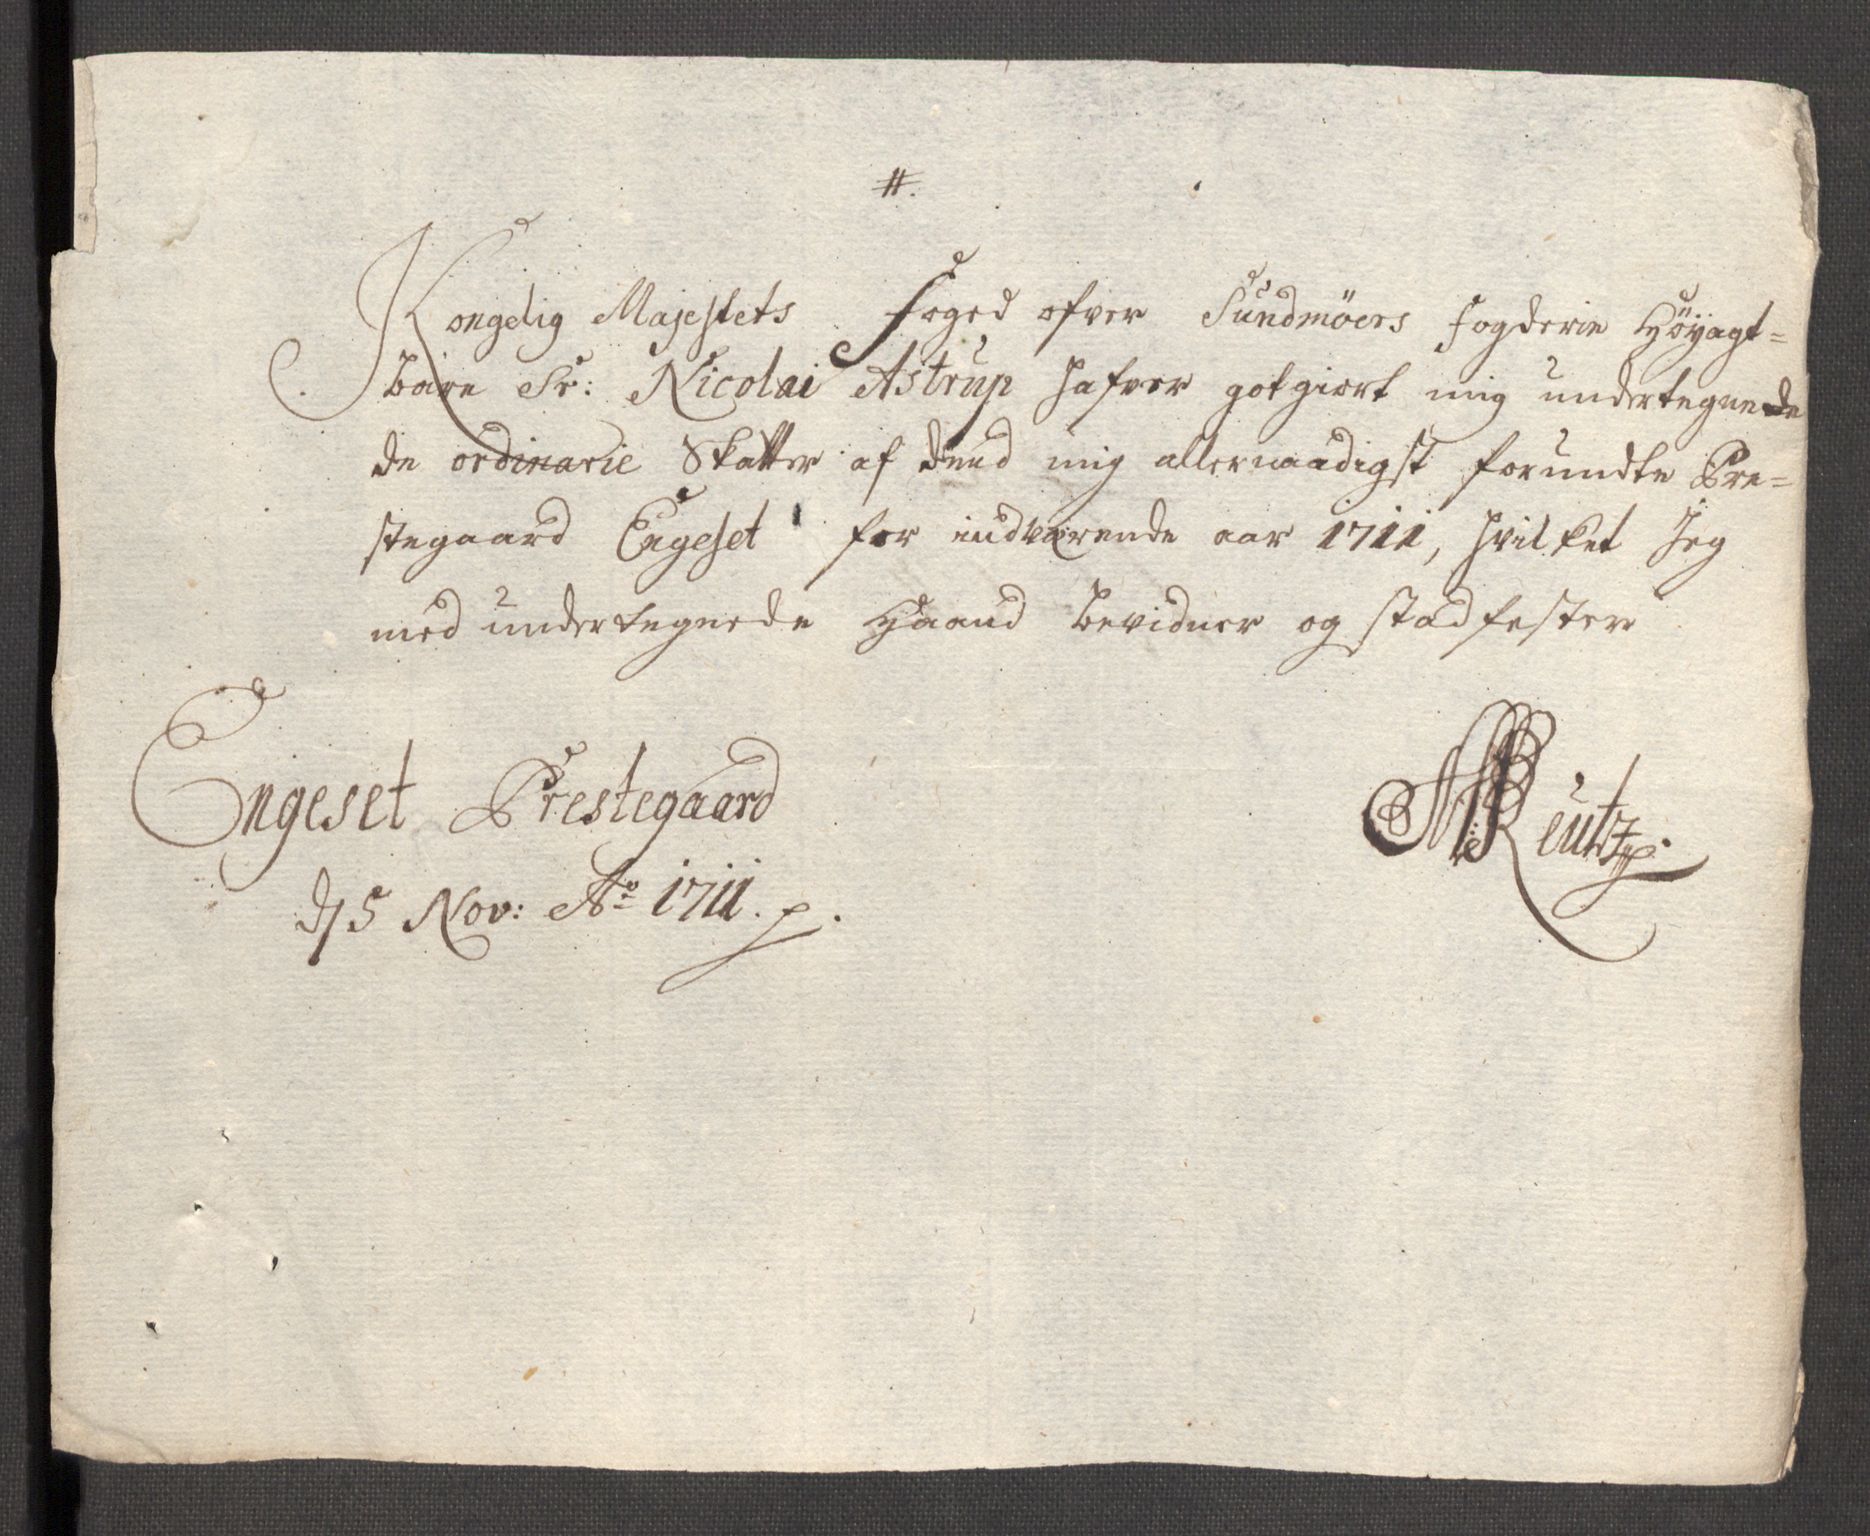 #.
Kongelig Majestets foged ofver Sundmöers fogderie Höyagt=
bare Sr: Nicolai Astrup hafver gotgiort mig undertegnede
de ordinarie Skatter af dend mig allernaadigst forundte Pre=
stegaard Engeset for indværende aar 1711, hvilket Jeg
med undertegnede Haand bevidner og stadfester
Engeset Prestegaard
d 5 Nov: Ao 1711. p.
Reutz p.